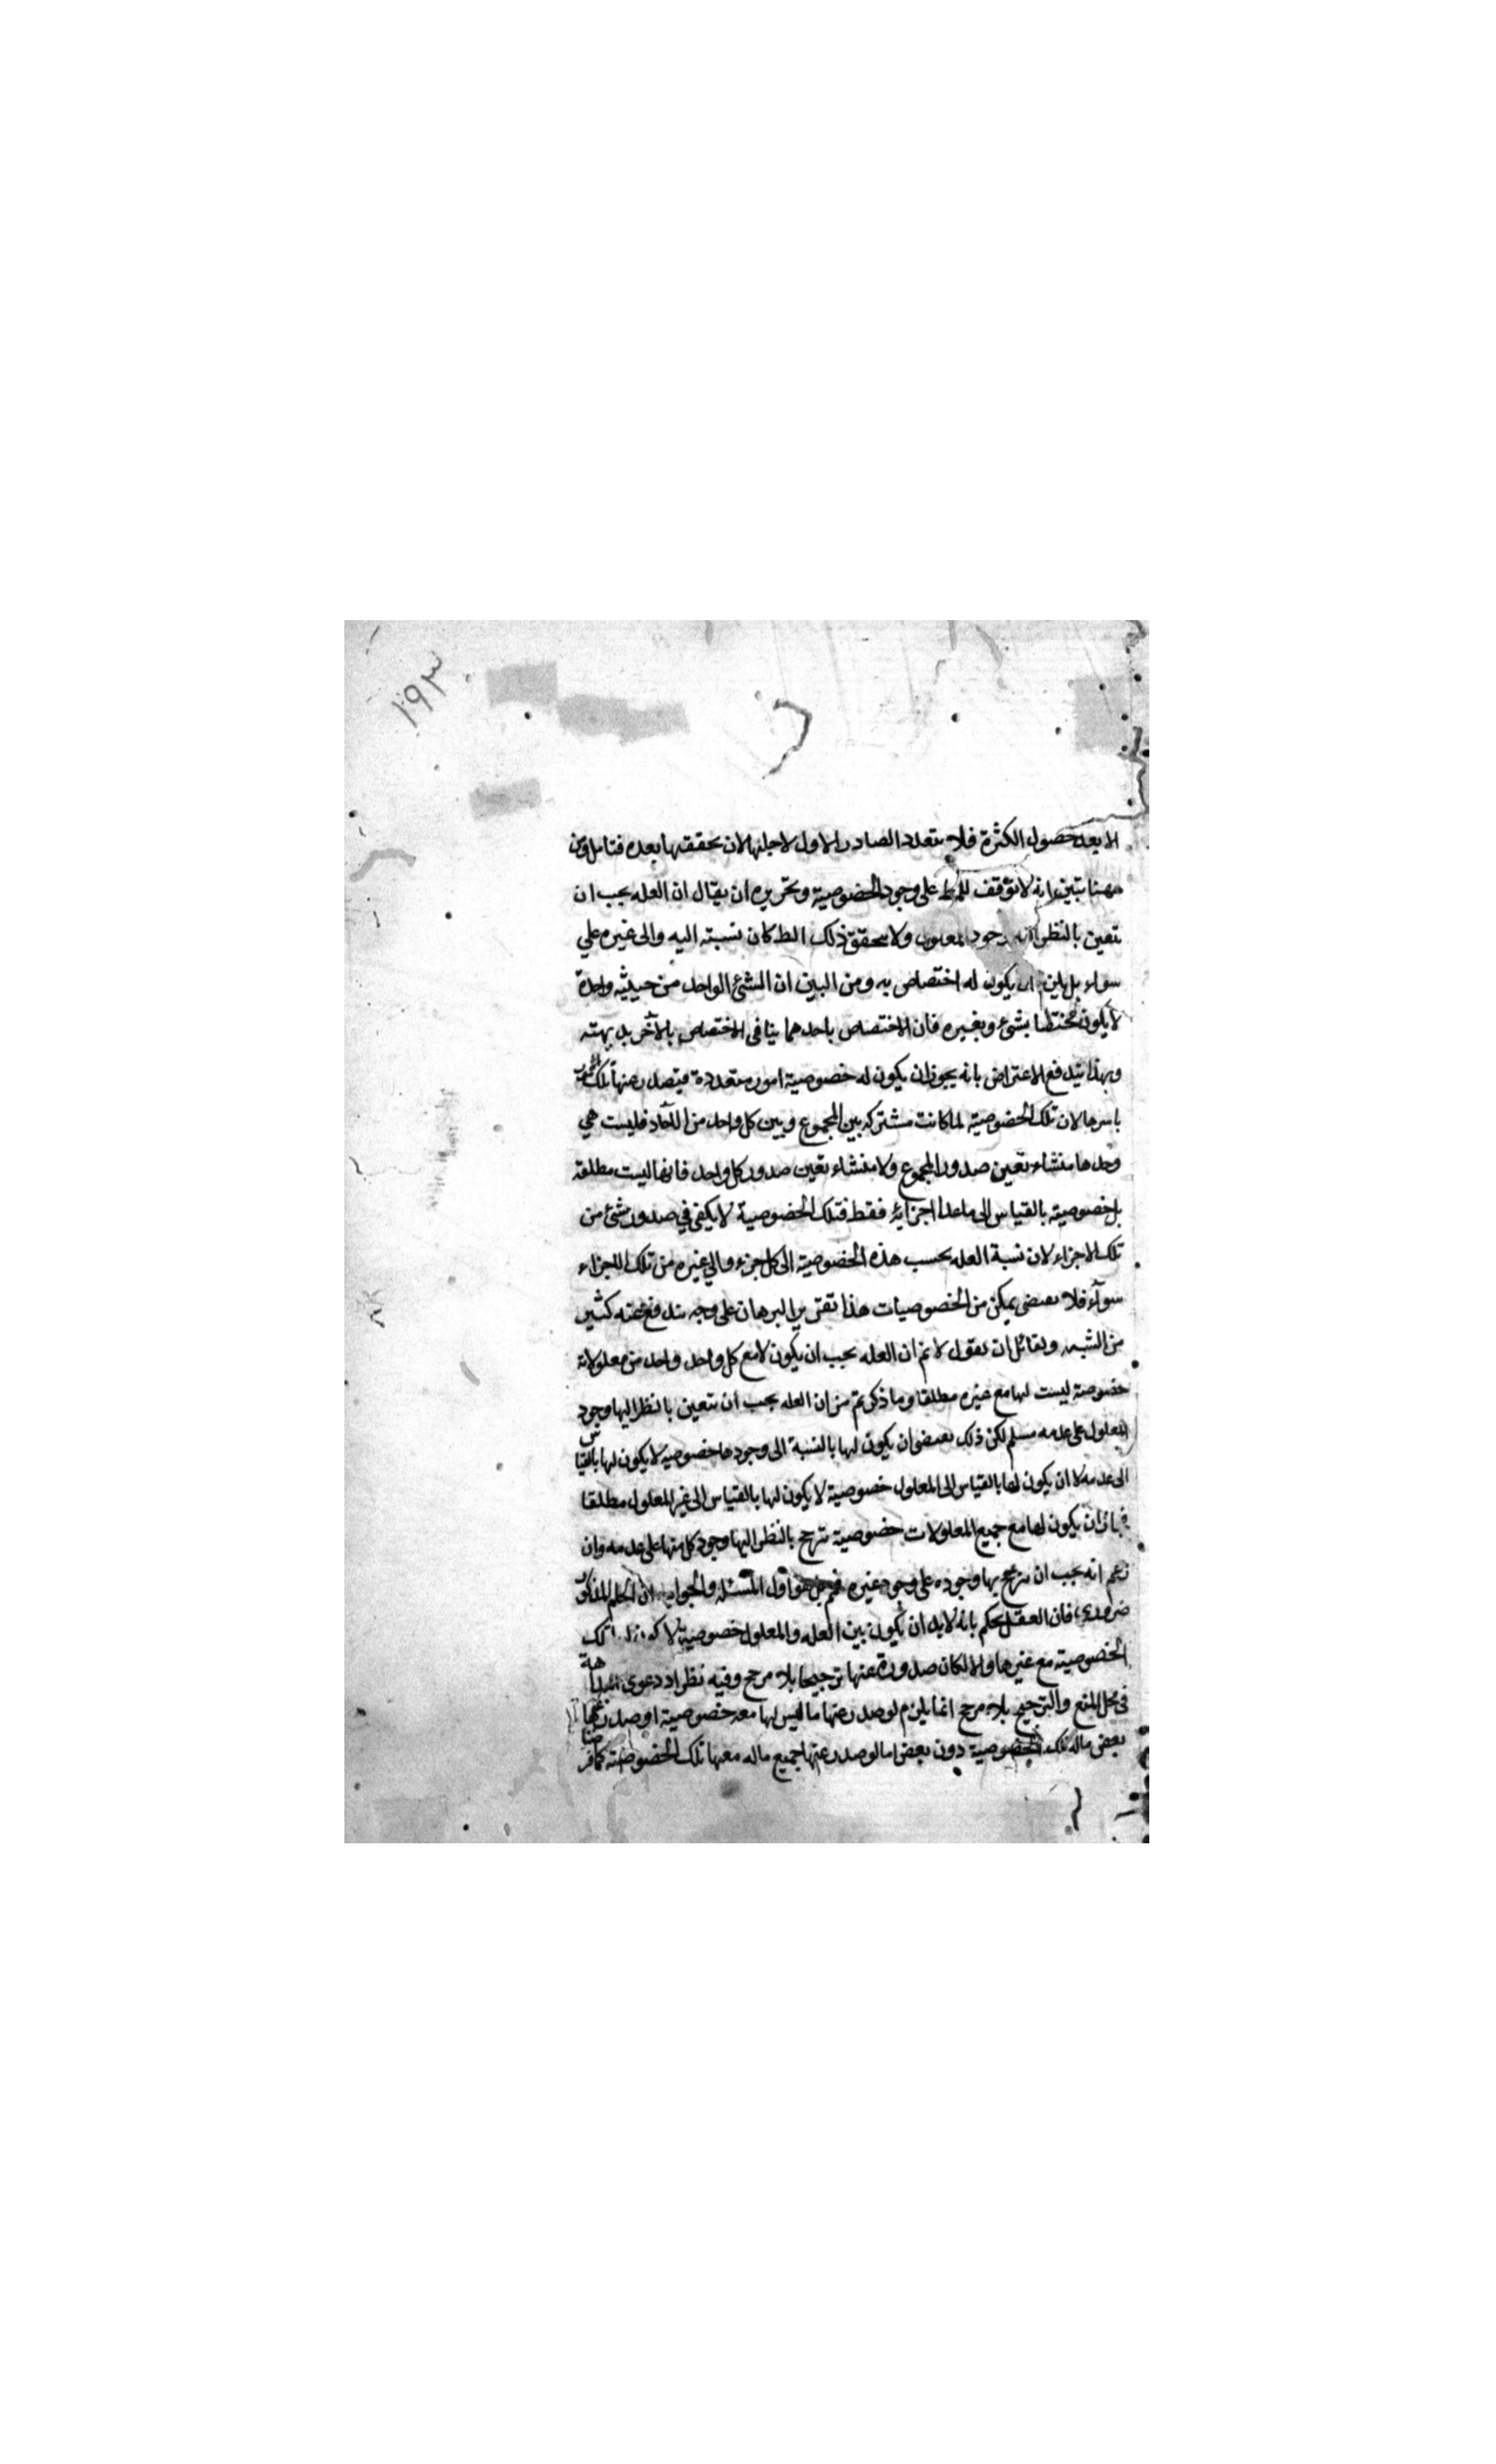 ١٩٣
الا بعد حصول الكثرة فلا يتعدد الصادر الاول لاجلها لان تحققها بعده فتامل ومن
ههنا يتبين انه لا توقف للمط على وجود الخصوصية وتحريره ان يقال ان العله يجب ان
يتعين بالنظر وجود المعلول ولا تحقق ذلك الط كان نسبته اليه والى غيره علي
سواء بل يلزم ان يكون له اختصاص به ومن البين ان الشئ الواحد من حيثيه واحدة
لا يكون مختصا بشئ وبغيره فان الاختصاص باحدهما ينافى الاختصاص بالآخر بديهته
وبهذا يندفع الاعتراض بانه يجوز ان يكون له خصوصية امور متعددة فيصدر عنها تلك الامور
باسرها لان تلك الخصوصية لما كانت مشتركه بين المجموع وبين كل واحد من الآحاد فليست هي
وحدها منشاء تعين صدور المجموع ولا منشاء تعين صدور كل واحد فانها ليست مطلقة
بل خصوصيته بالقياس الى ماعدا اجزائه فقط فتلك الخصوصية لا يكفى في صدور شئ من
تلك الاجزاء لان نسبة العله بحسب هذه الخصوصية الى كل جزء والى غيره من تلك الاجزاء
سوآء فلا يمكن من الخصوصيات هذا تقرير البرهان على وجه يندفع عنه كثير
من الشبه ولقائل ان يقول لا نم ان العله يجب ان يكون لا مع كل واحد واحد من معلولاته
خصوصية ليست لها مع غيره مطلقا وما ذكرتم من ان العله يجب ان يتعين بالنظر اليها وجود
المعلول على عدمه مسلم لكن ذلك يقتضى ان يكون لها بالنسبة الى وجودها خصوصيه لا يكون لها بالقياس
الى عدمه لا ان يكون لها بالقياس الى المعلول خصوصية لا يكون لها بالقياس الى غير المعلول مطلقا
فجاز ان يكون لها مع جميع المعلولات خصوصية ترجح بالنظر اليها وجود كل منها على عدمه وان
زعم انه يجب ان يرجح بها وجوده على وجود غيره فهو اول المسئله والجواب ان الحكم المذكور
ضرورى فان العقل يحكم بانه لابد ان يكون بين العله والمعلول خصوصية لا تلك
الخصوصية مع غيرها والا لكان صدوره عنها ترجيحا بلا مرجح وفيه نظر اذ دعوى البداهة
فى محل المنع والترجيح بلا مرجح انما يلزم لو صدر عنها ما ليس لها معه خصوصية او صدر عنها
بعض ماله تلك الخصوصية دون بعض اما لو صدر عنها جميع ماله معها تلك الخصوصية كما فرضنا